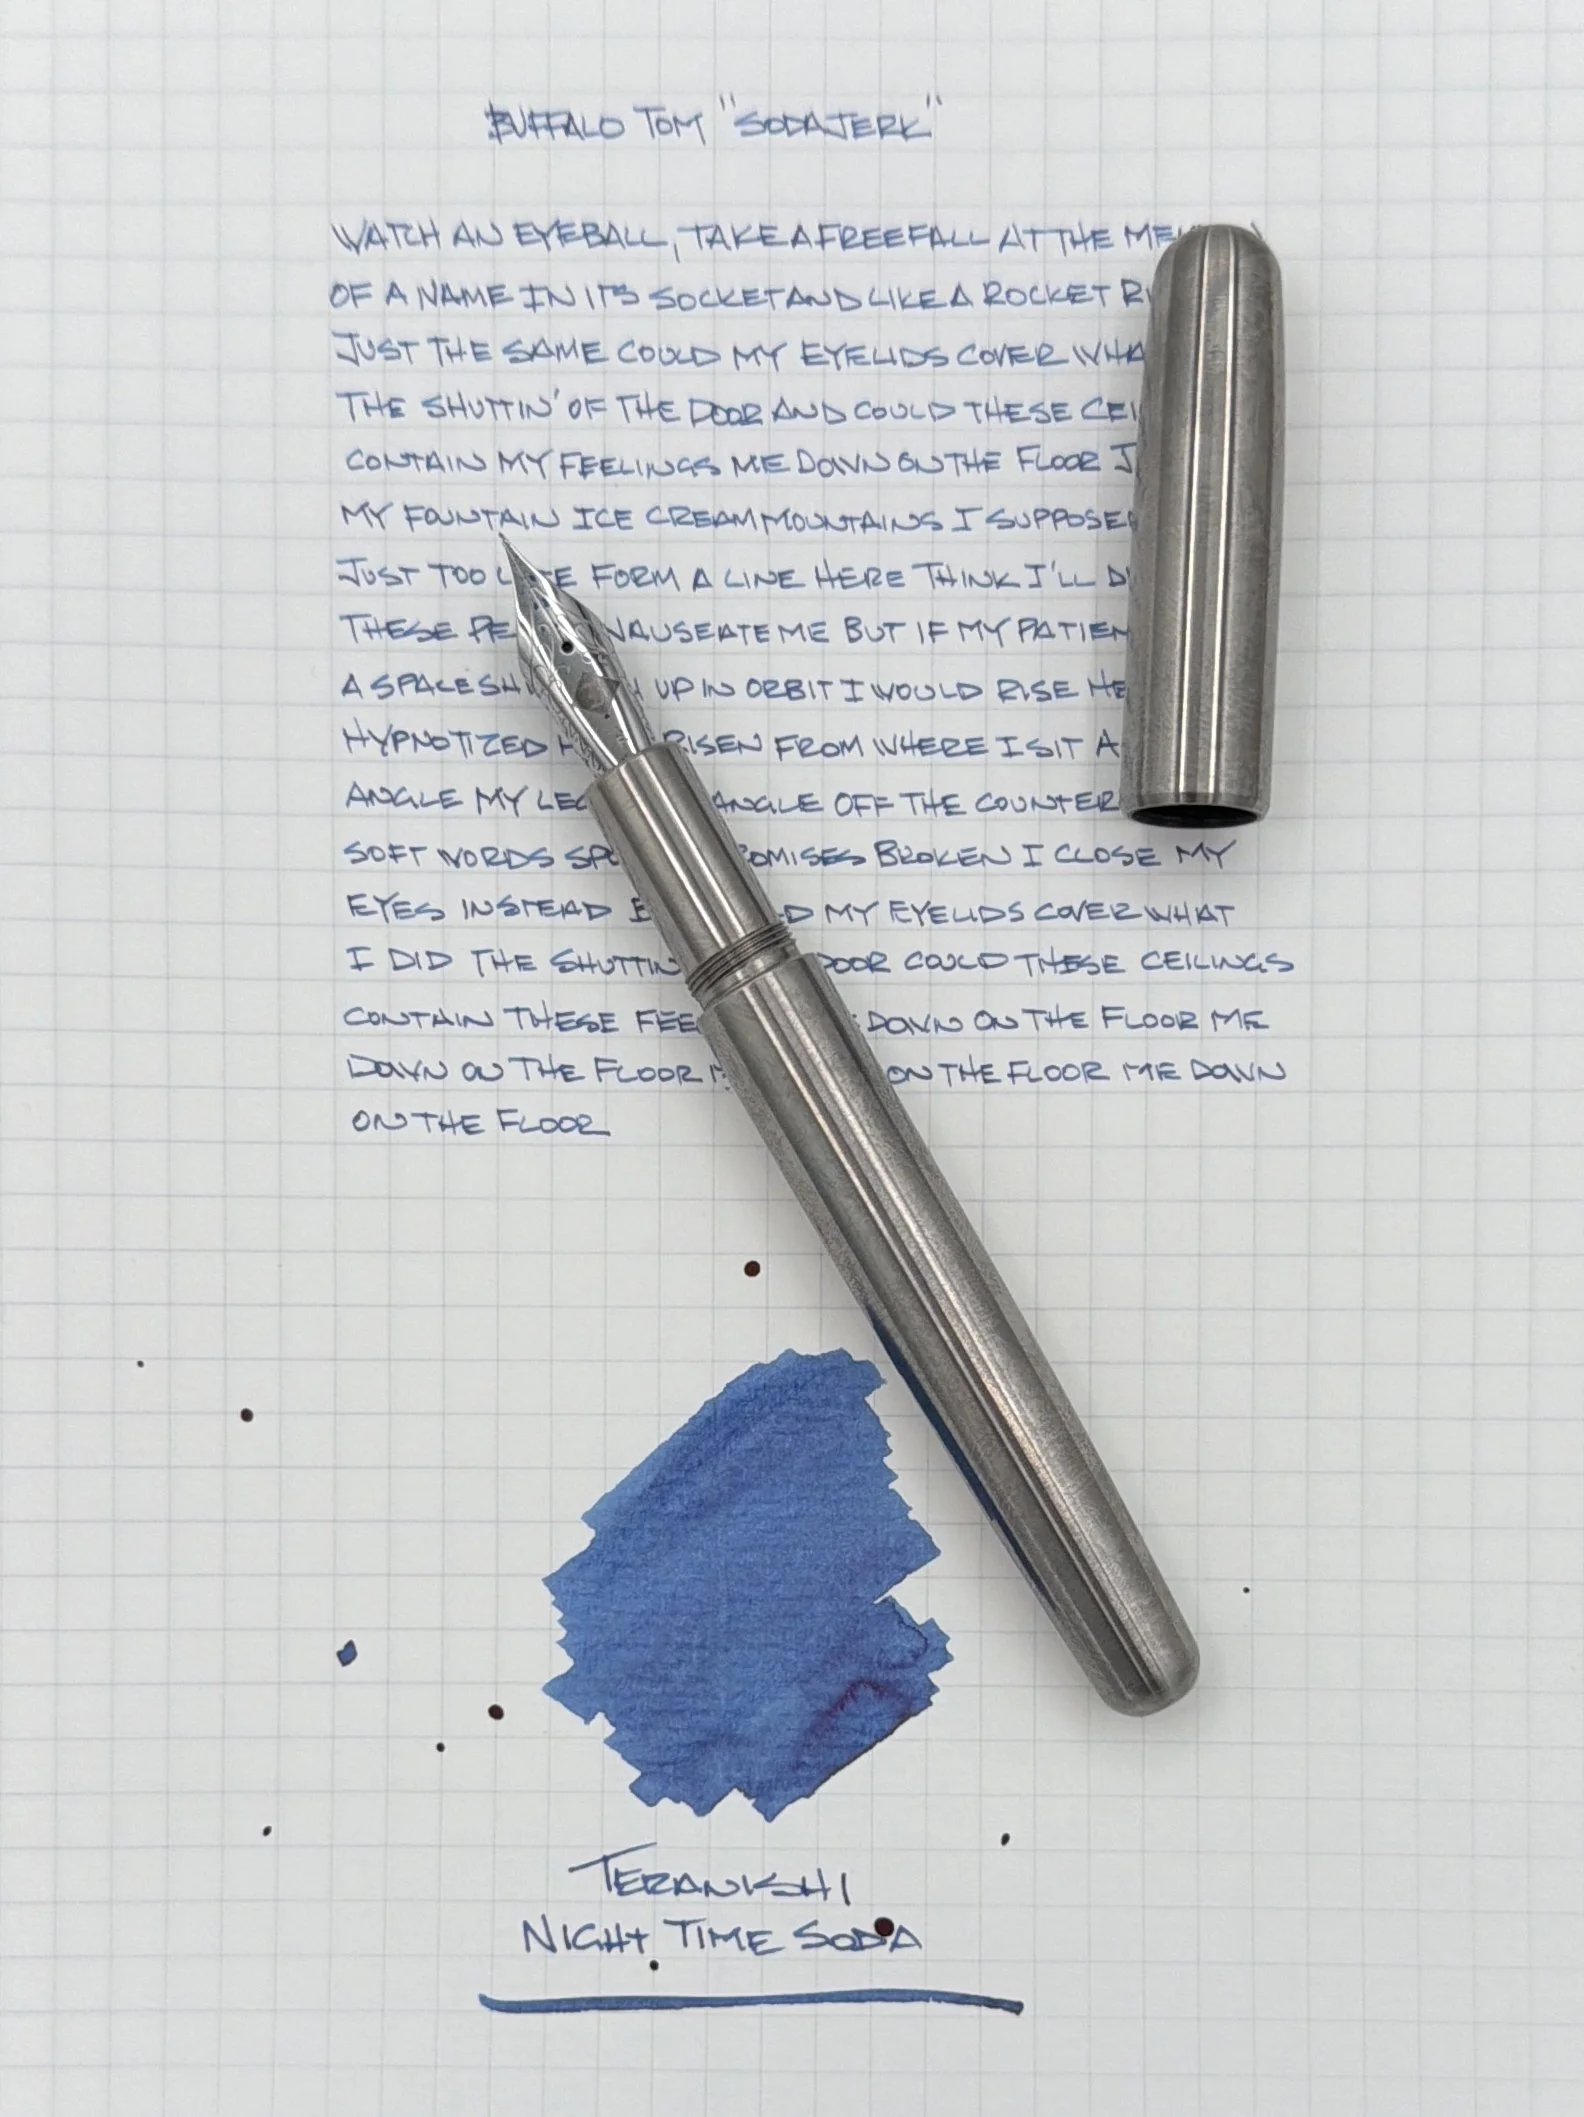 BUFFALO TOM "SODAJERK"
WATCH AN EYEBALL, TAKE A FREEFALL AT THE
OF A NAME IN IT'S SOCKET AND LIKE A ROCKET
JUST THE SAME COULD MY EYELIDS COVER
THE SHUTTIN' OF THE DOOR AND COULD THESE
CONTAIN MY FEELINGS ME DOWN ON THE FLOOR
MY FOUNTAIN ICE CREAM MOUNTAINS I
JUST TOO FORM A LINE HERE THINK I'LL
THESE NAUSEATE ME BUT IF MY
A UP IN ORBIT I WOULD RISE
HYPNOTIZED RISEN FROM WHERE I SIT
ANGLE MY OFF THE
SOFT WORDS BROKEN I CLOSE MY
EYES INSTEAD MY EYELIDS COVER WHAT
I DID THE DOOR COULD THESE CEILINGS
CONTAIN THESE DOWN ON THE FLOOR ME
DOWN ON THE FLOOR ON THE FLOOR ME DOWN
ON THE FLOOR
TERANISHI
NIGHT TIME SODA